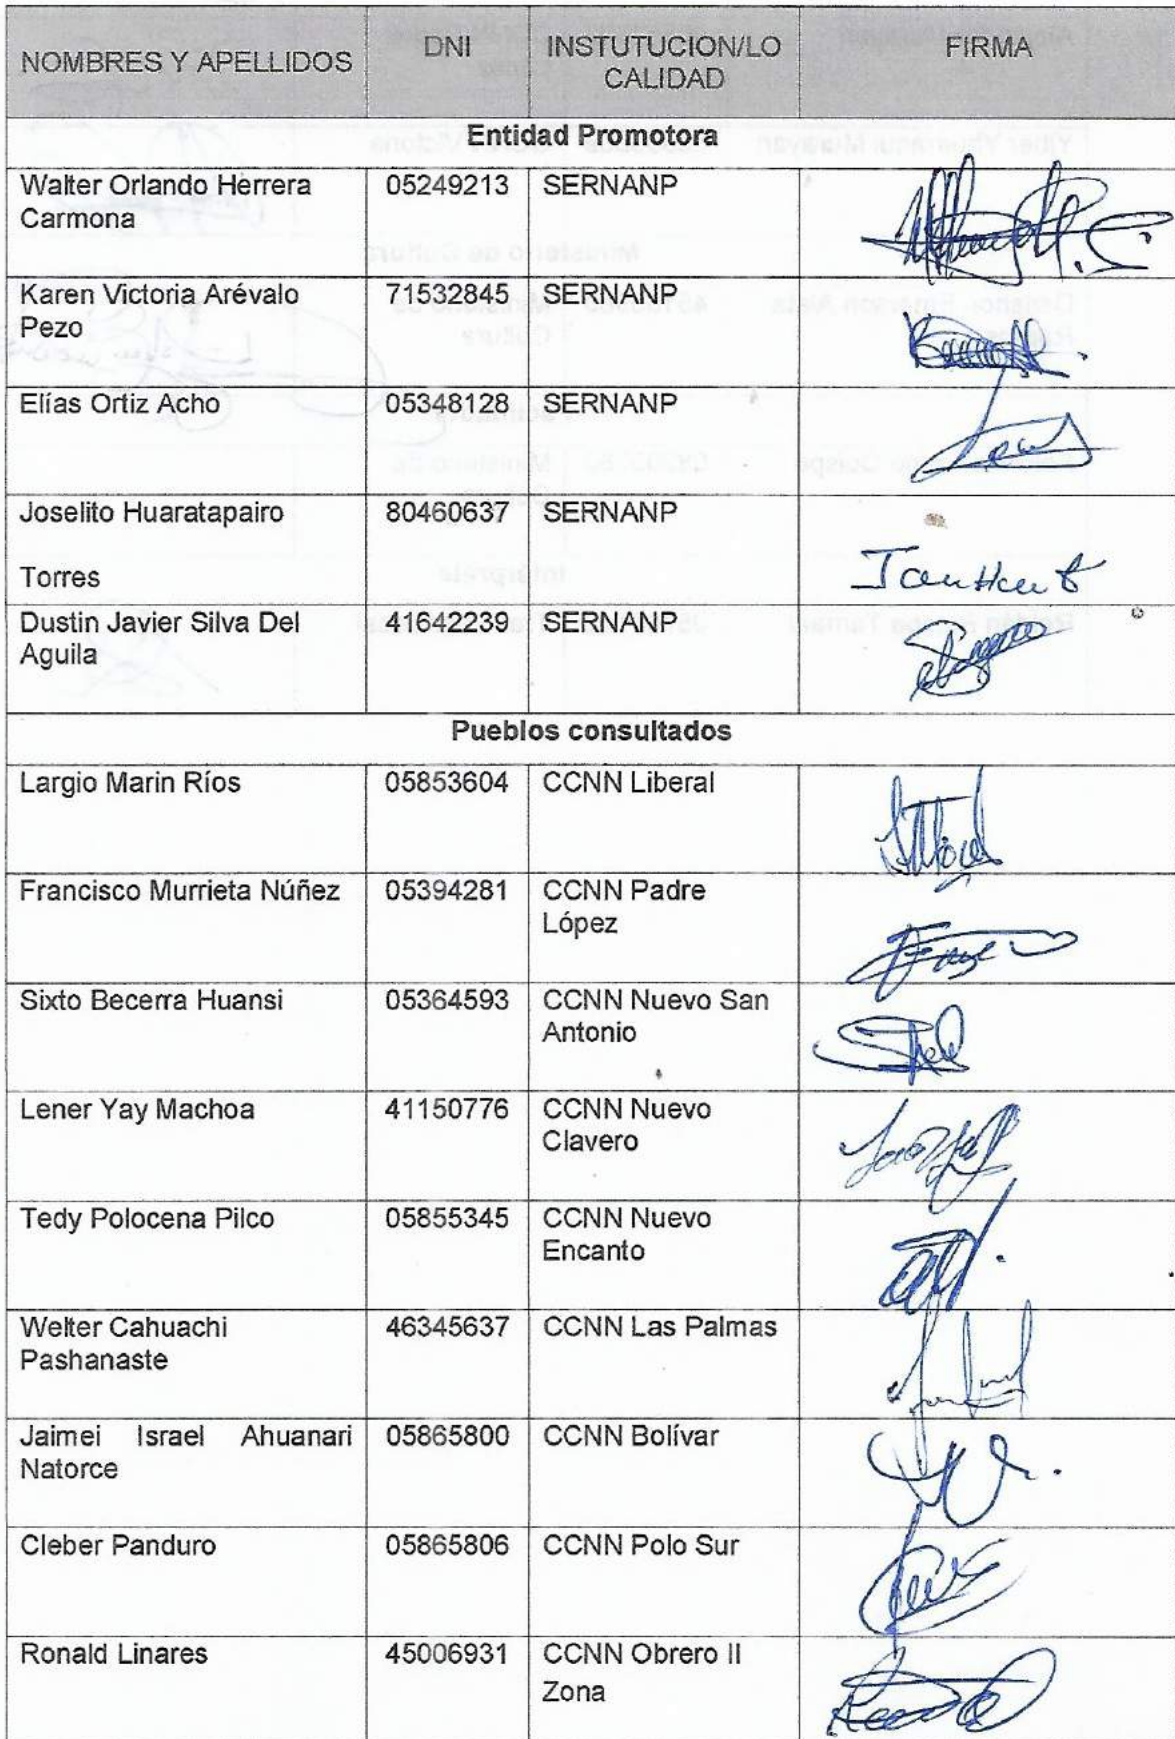 NOMBRES Y APELLIDOS DNI INSTUTUCION/LO CALIDAD FIRMA
Entidad Promotora
Walter Orlando Herrera 05249213 SERNANP
Carmona
Karen Victoria Arévalo 71532845 SERNANP
Pezo
Elías Ortiz Acho 05348128 SERNANP
Joselito Huaratapairo 80460637 SERNANP
Torres
Dustin Javier Silva Del 41642239 SERNANP
Aguila
Pueblos consultados
Largio Marin Ríos 05853604 CCNN Liberal
Francisco Murrieta Núñez 05394281 CCNN Padre
López
Sixto Becerra Huansi 05364593 CCNN Nuevo San
Antonio
Lener Yay Machoa 41150776 CCNN Nuevo
Clavero
Tedy Polocena Pilco 05855345 CCNN Nuevo
Encanto
Welter Cahuachi 46345637 CCNN Las Palmas
Pashanaste
Jaimei Israel Ahuanari 05865800 CCNN Bolívar
Natorce
Cleber Panduro 05865806 CCNN Polo Sur
Ronald Linares 45006931 CCNN Obrero II
Zona